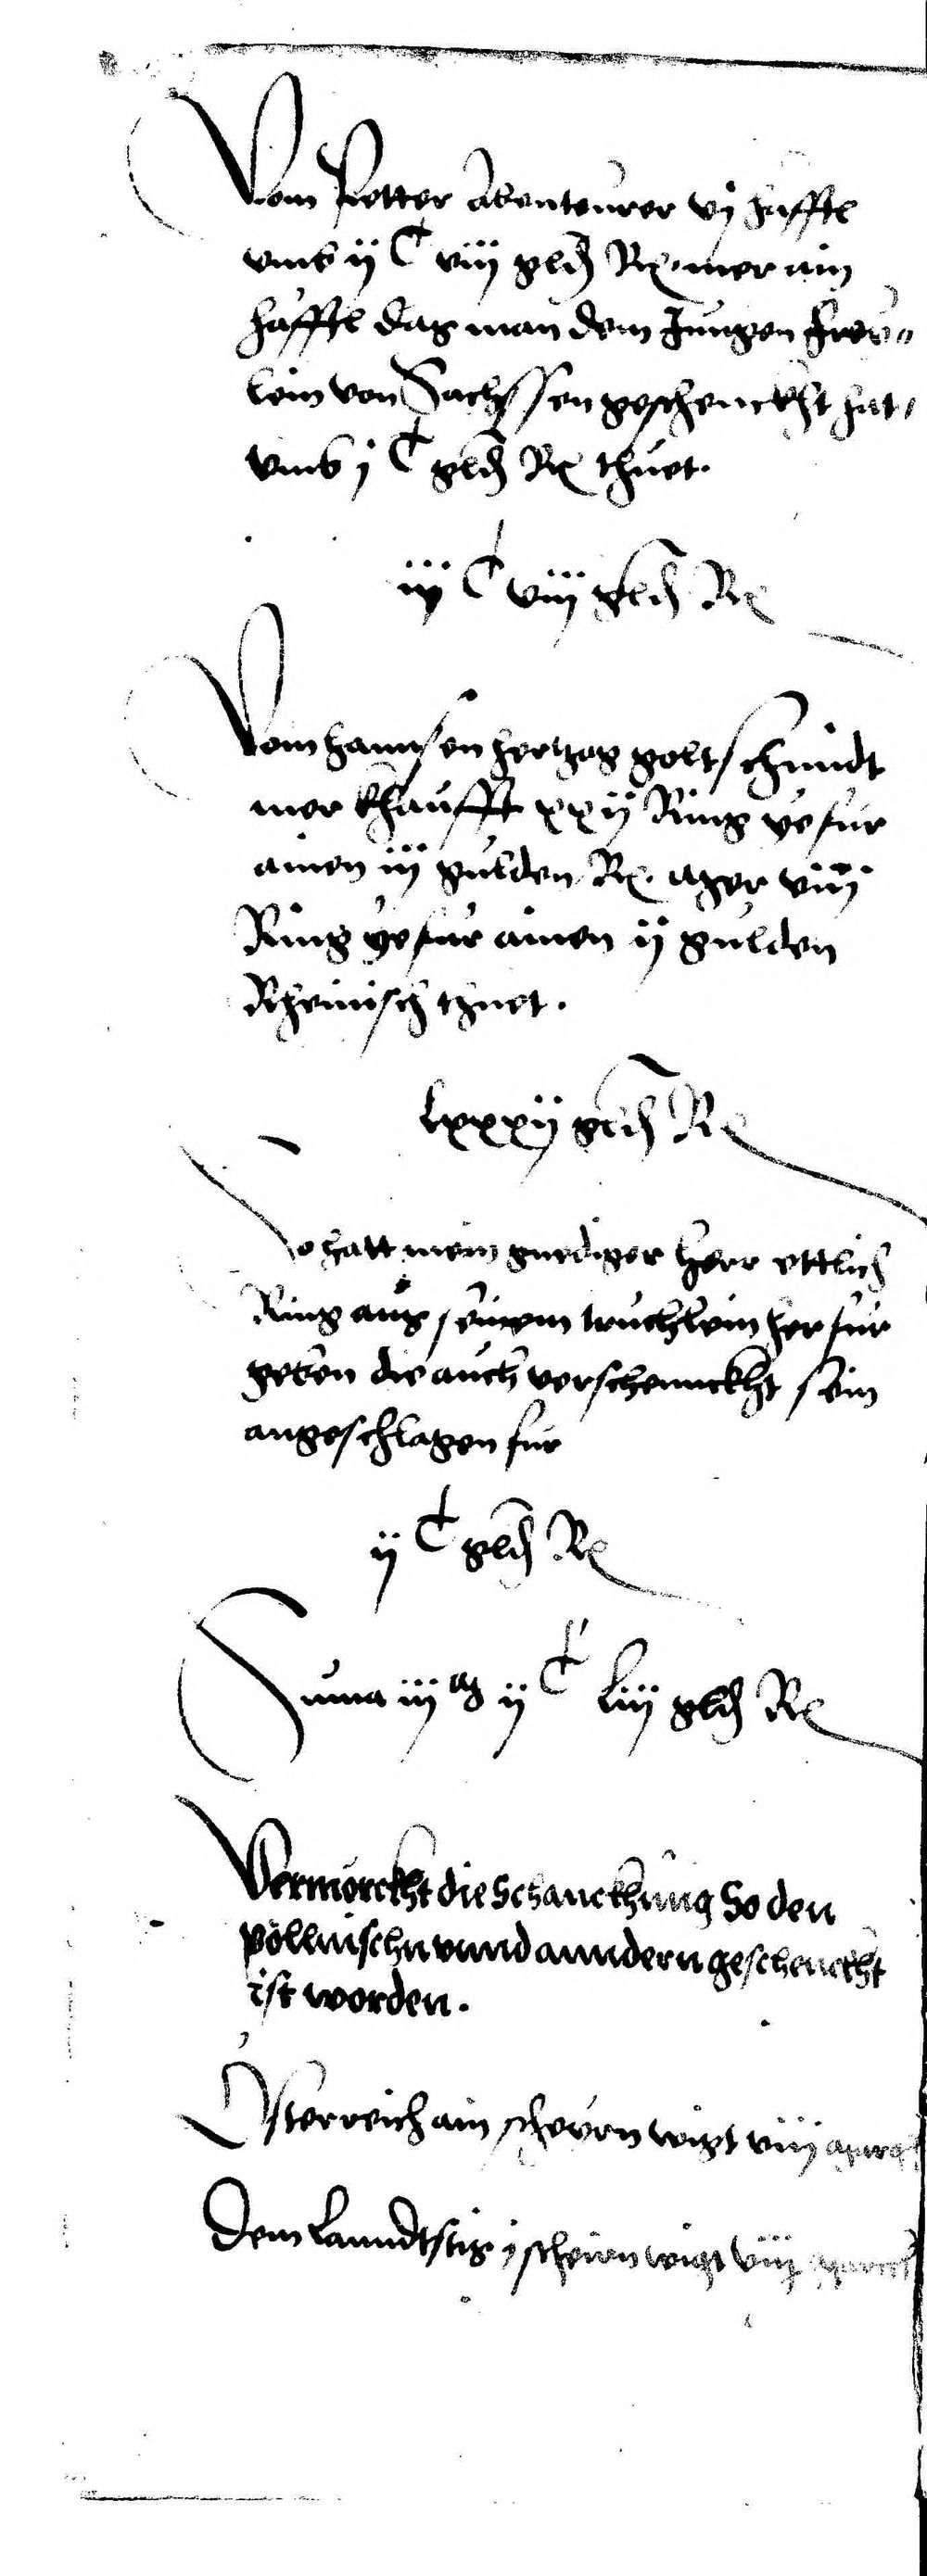 Vom Petter Abenteurer vj hafftl
vmb ij C viij gld Rh. mer ain
hafftl das man dem Jungen frew„
lein von Sachssen geschennckht hat„
vmb j C gld Rh thuet.
iij C viij gld Rh
Vom hannsen hertzog goltschmidt
mer khaufft xxij Ring ye fur
ainen iij gulden Rh. mer viij
Ring ye fur ainen ij gulden
Rheinisch thuet.
Lxxxij gld Rh
So hatt mein gnediger herr ettlich
Ring aus seinem truchlein herfur
geben die auch verschennckht sein
angeschlagen fur
ij C gld Rh
Suma iij M ij C Liij gld Rh
Vermerckht die Schanckhung So den
pöllnischn vnnd anndern geschenckht
ist worden.
Osterreich ain schewrn wigt viij
Dem Lanndtstis j schewrn wigt viij